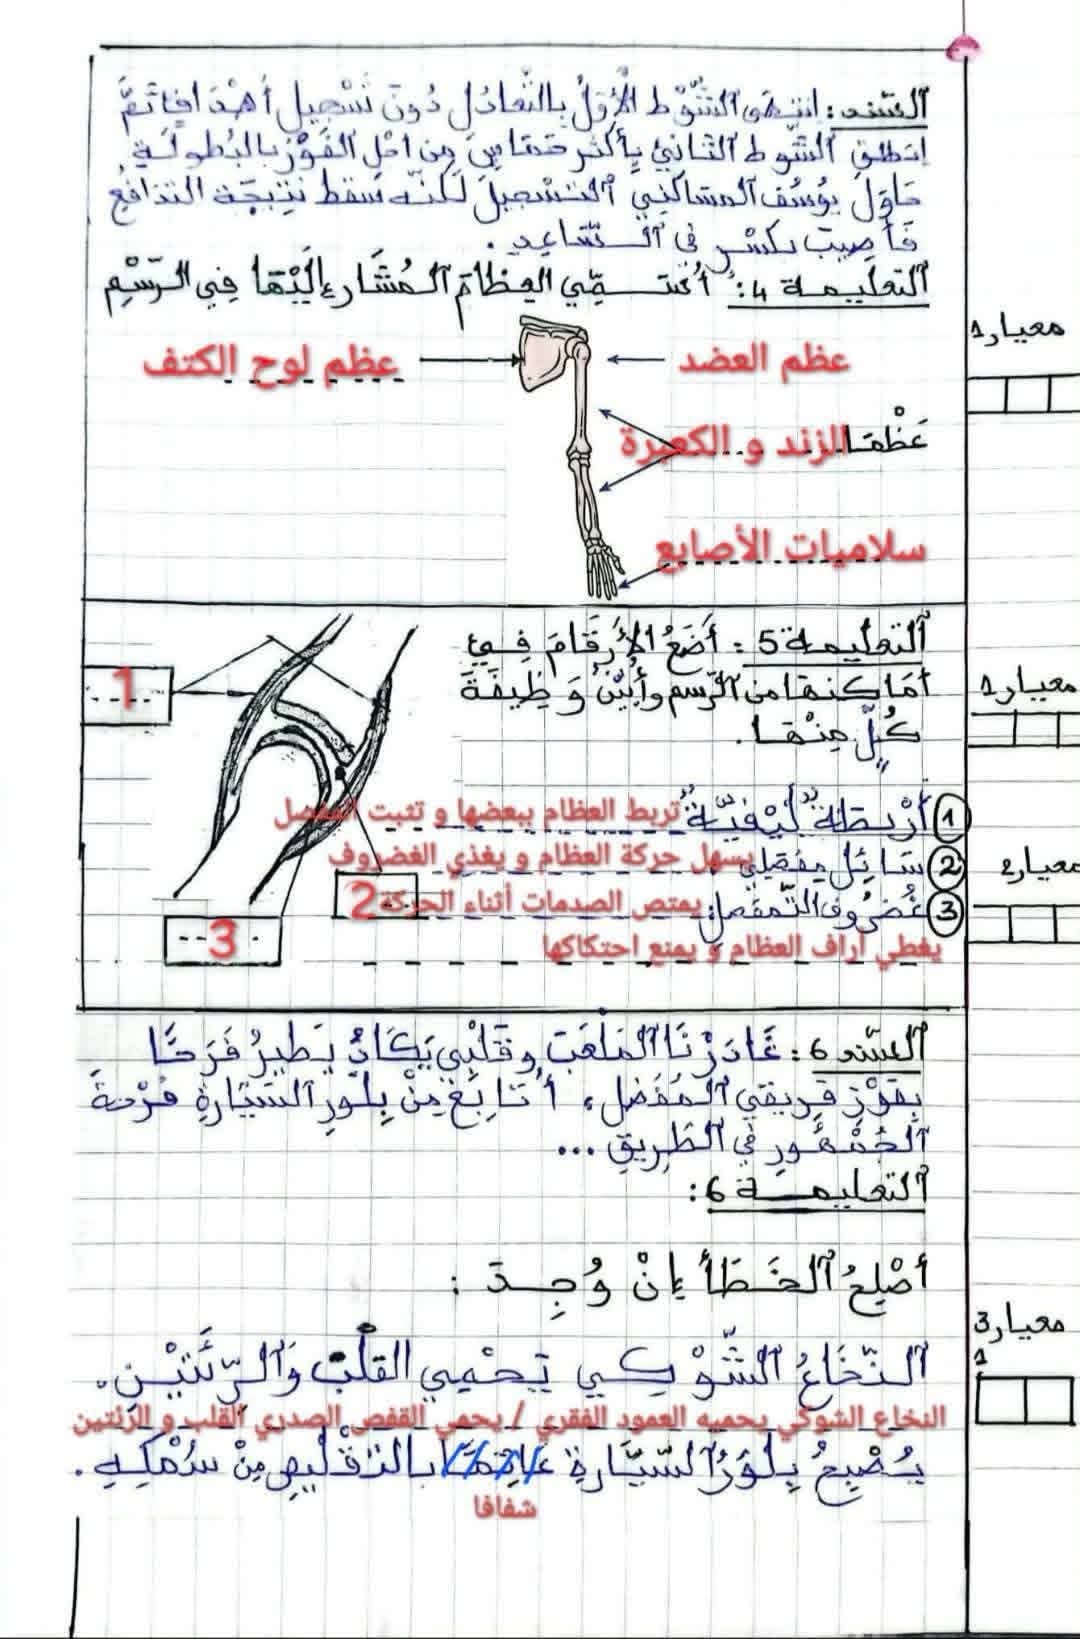 السند: انتهى الشّوط الأوّل بالتّعادل دون تسجيل أهداف ثمّ
انطلق الشّوط الثاني بأكثر حماس من أجل الفوز بالبطولة.
حاول يوسف المساكني التسجيل لكنّه سقط نتيجة التدافع
فأصيب بكسر في السّاعد.
التعليمة 4: أُسَمِّي العِظَامَ المُشَارَ إِلَيْهَا فِي الرَّسْمِ
معيار 1
عظم العضد
عظم لوح الكتف
عَظْمَا الزند و الكعبرة
سلاميات الأصابع
التعليمة 5: أَضَعُ الأَرْقَامَ فِي
أَمَاكِنِهَا مِنَ الرّسم وأُبَيِّنُ وَظِيفَةَ
كُلٍّ مِنْهَا.
معيار 1
1
① أَرْبِطَةٌ لِيفِيَّةٌ: تربط العظام ببعضها و تثبت المفصل
② سَائِل مفصلي يسهل حركة العظام و يغذي الغضروف
معيار 2
③ غُضْرُوف التّمفصل: يمتص الصدمات أثناء الحركة
2
يغطي أراف العظام و يمنع احتكاكها
3
السّند 6: غَادَرْنَا المَلْعَبَ وقَلْبِي يَكَادُ يَطِيرُ فَرَحًا
بِفَوْزِ فريقي المُفَضَّل، أُتَابِعُ مِنْ بِلَّوْرِ السَّيَّارَةِ فَرْحَةَ
الجُمْهُورِ فِي الطَّرِيقِ ...
التعليمـة 6:
أُصْلِحُ الخَطَأَ إِنْ وُجِدَ :
معيار 3
1
النُّخَاعُ الشَّوْكِي يَحْمِي القَلْبَ وَالرِّئَتَيْنِ.
النخاع الشوكي يحميه العمود الفقري / يحمي القفص الصدري القلب و الرئتين
يُصْبِحُ بِلَّوْرُ السَّيَّارَةِ عَاتِمًا بالتَّقْلِيصِ مِنْ سُمْكِهِ.
شفافا